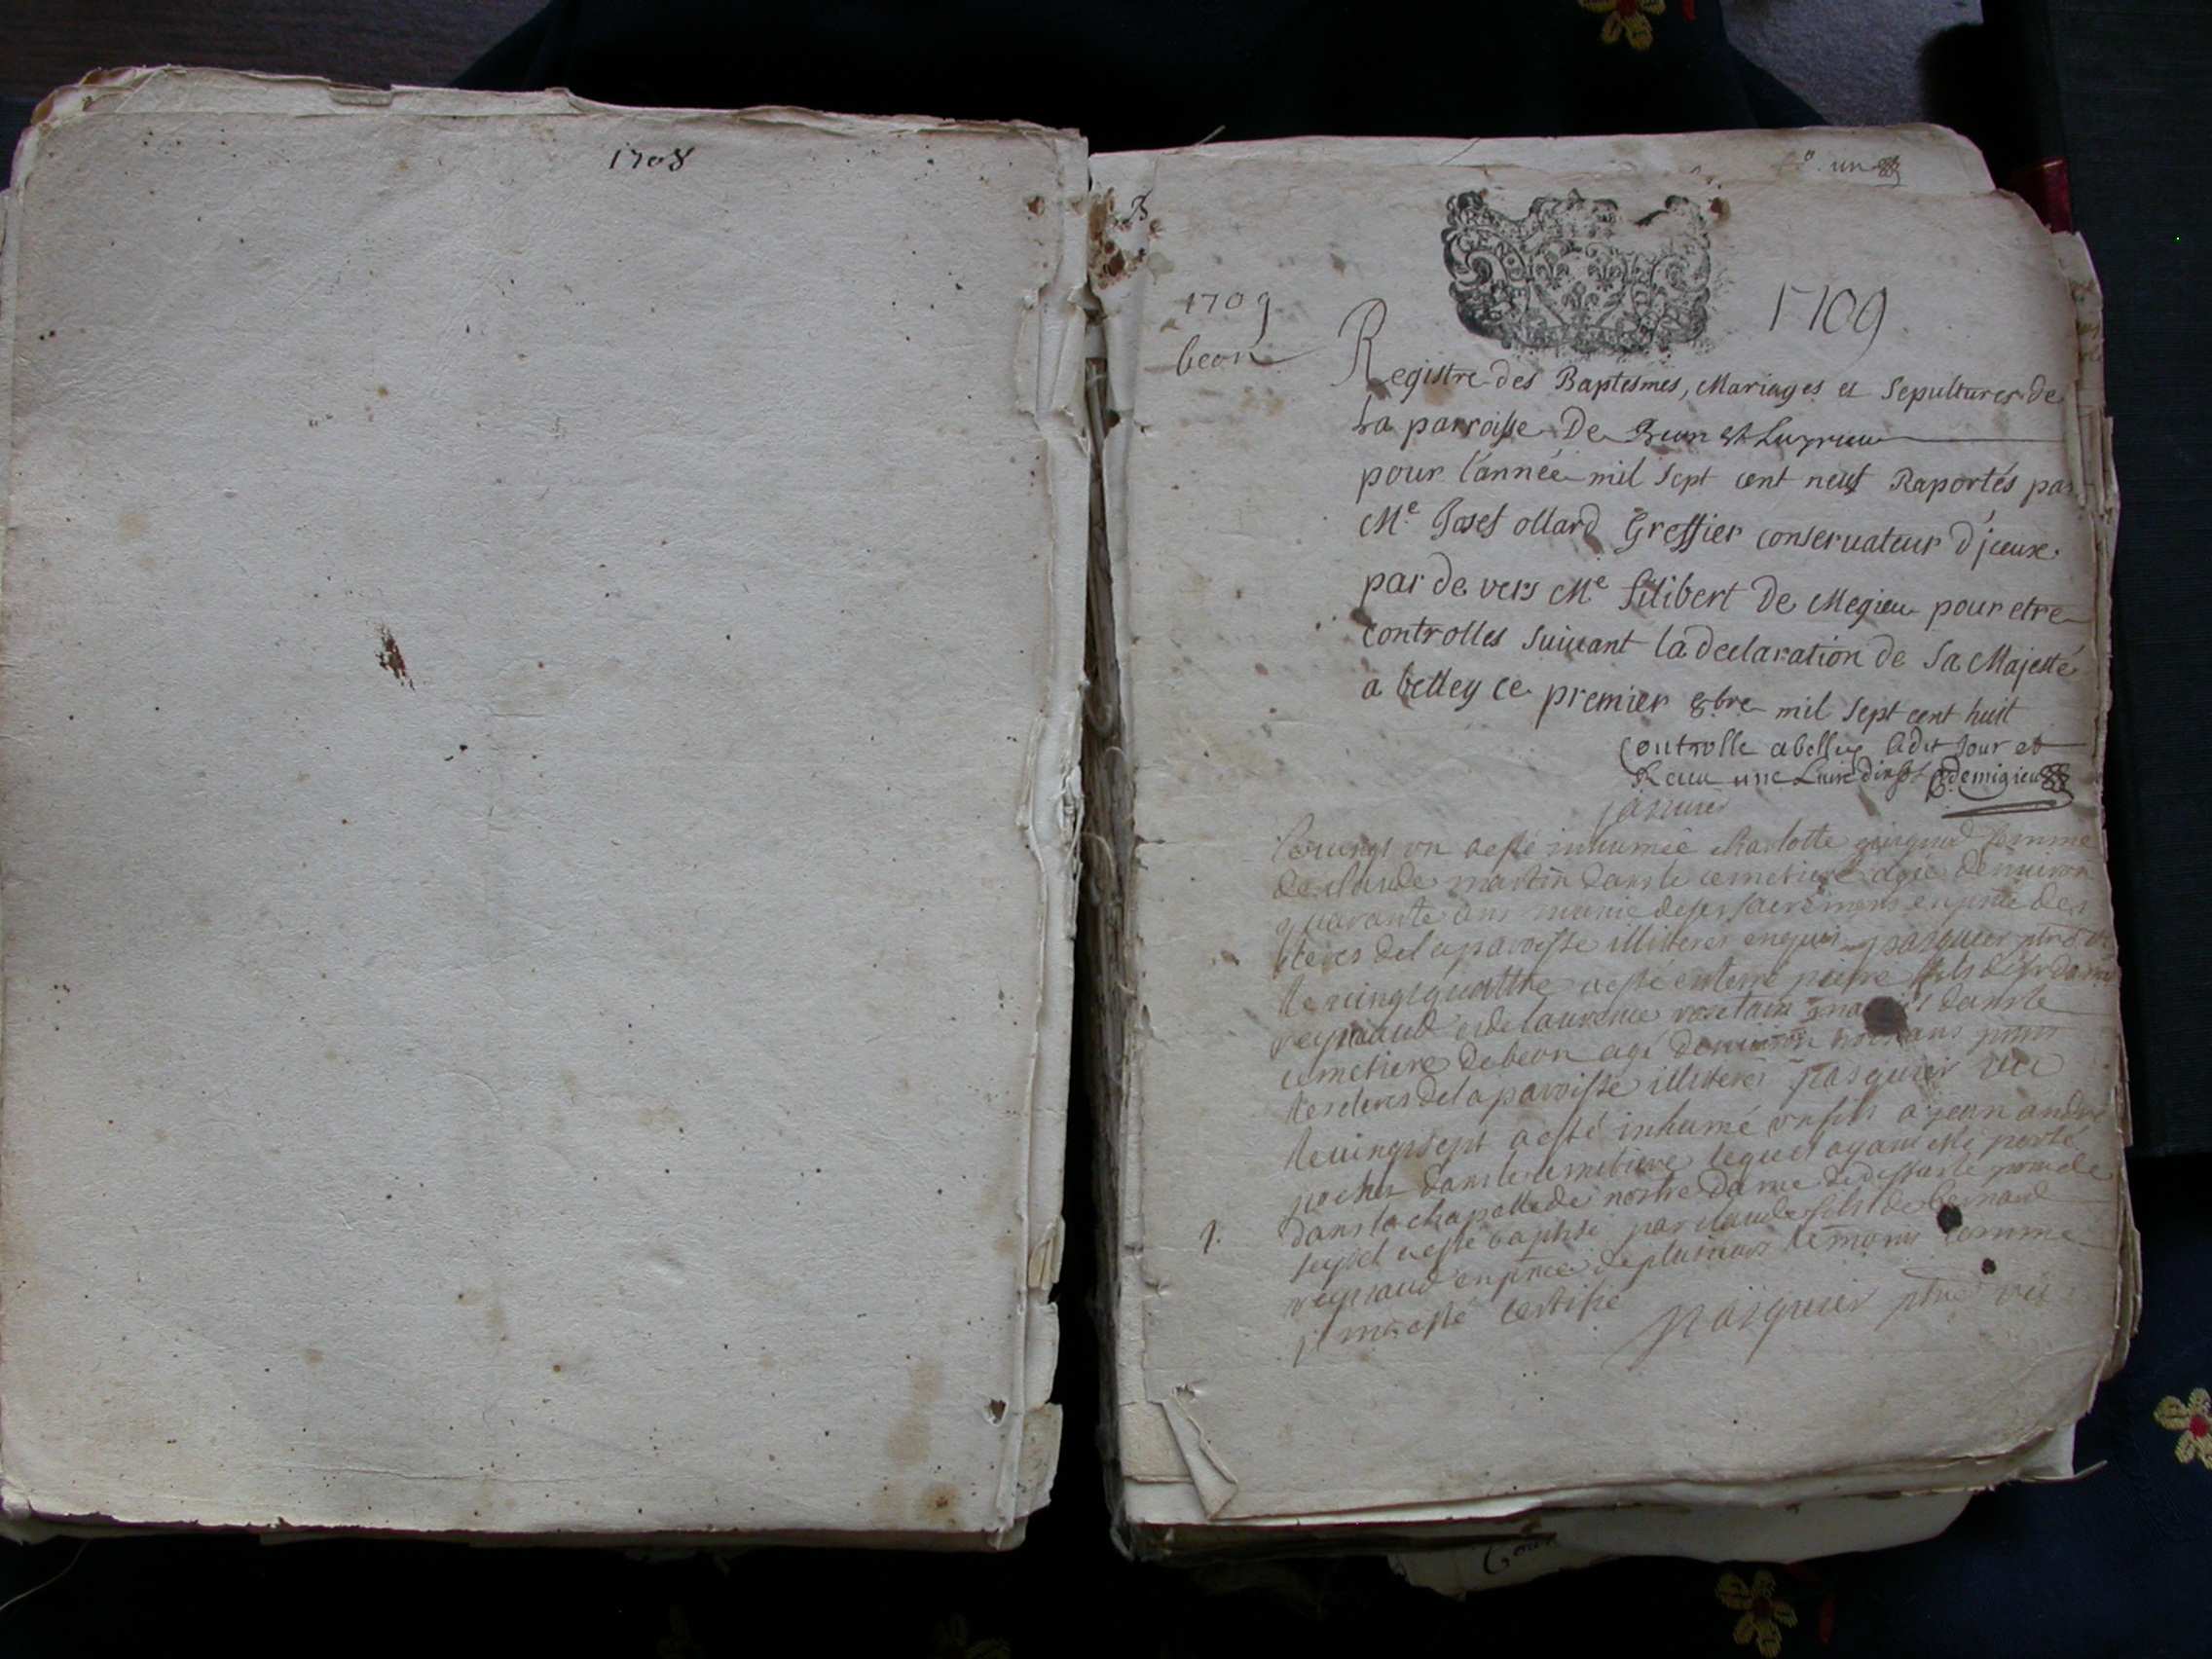 1708
fo. un
1709
1709
beon
Registre des Baptesmes, Mariages et Sepultures de
La parroisse De Beon et Luyrieu
pour l'année mil sept cent neuf Raportés par
Me Josef ollard Greffier conseruateur d'jceux
par de vers Me filibert De Megieu pour etre
controlles suiuant la declaration de sa Majesté
a belley ce premier 8bre mil sept cent huit
Controlle a belley ledit Jour et
Receu une Liure dix s. demigieu
januier
le uingt vn a esté inhumée charlotte femme
de claude martin dans le cemetiere agée denuiron
quarante ans munie de ses sacremens en pnce des
cleres de la paroisse illiteres enquis pasquier ptre
le uingt quattre a esté enterré pierre fils de
reynaud et de laurence dans le
cemetiere de beon agé denuiron ans
les cleres de la paroisse illiteres pasquier vic
le uingt sept a esté inhumé vn fils a jean andré
pochet dans le cemetiere lequel ayant esté porté
dans la chapelle de nostre dame de
1.
seyssel a esté baptisé par claude fils de bernard
reynaud en pnce de plusieurs temoins comme
il m'a esté certifié
pasquier ptre vic